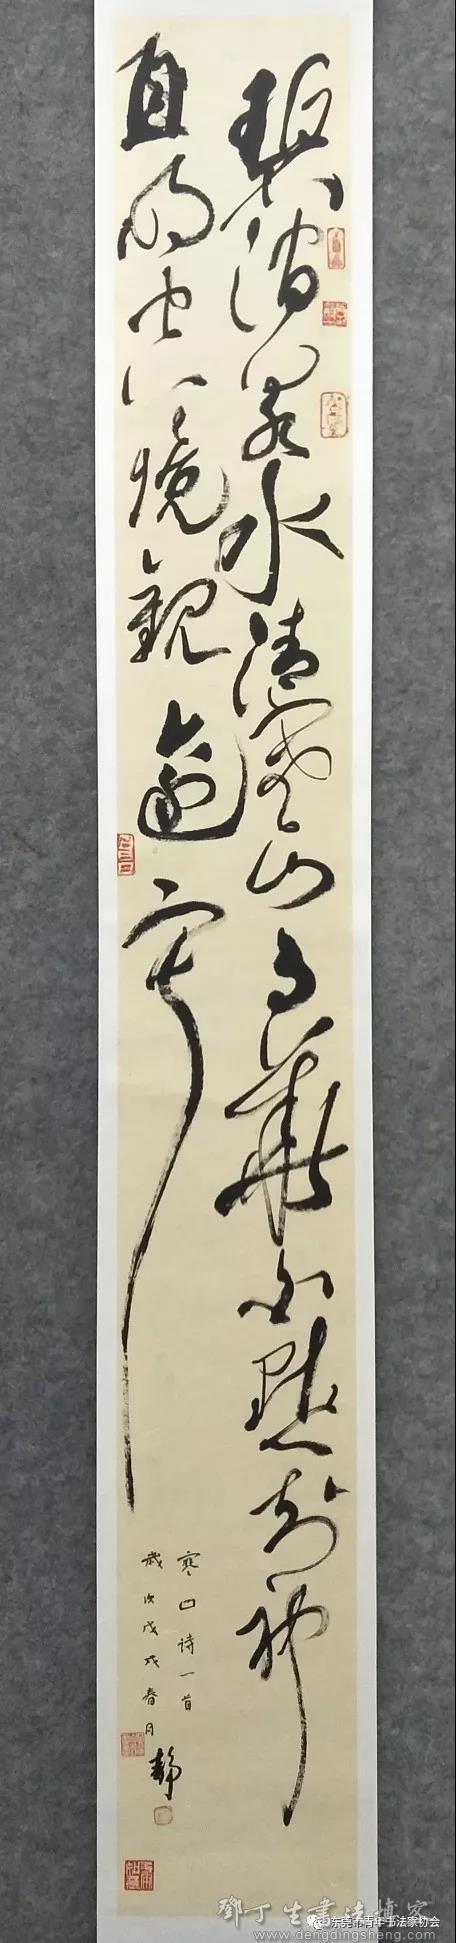 碧澗泉水清寒山月華白默知神
自明空境觀逾寂
寒山诗一首
歲次戊戌春月
靜
东莞市青年书法家协会
鄧丁生書法
www.dengdingsheng.com